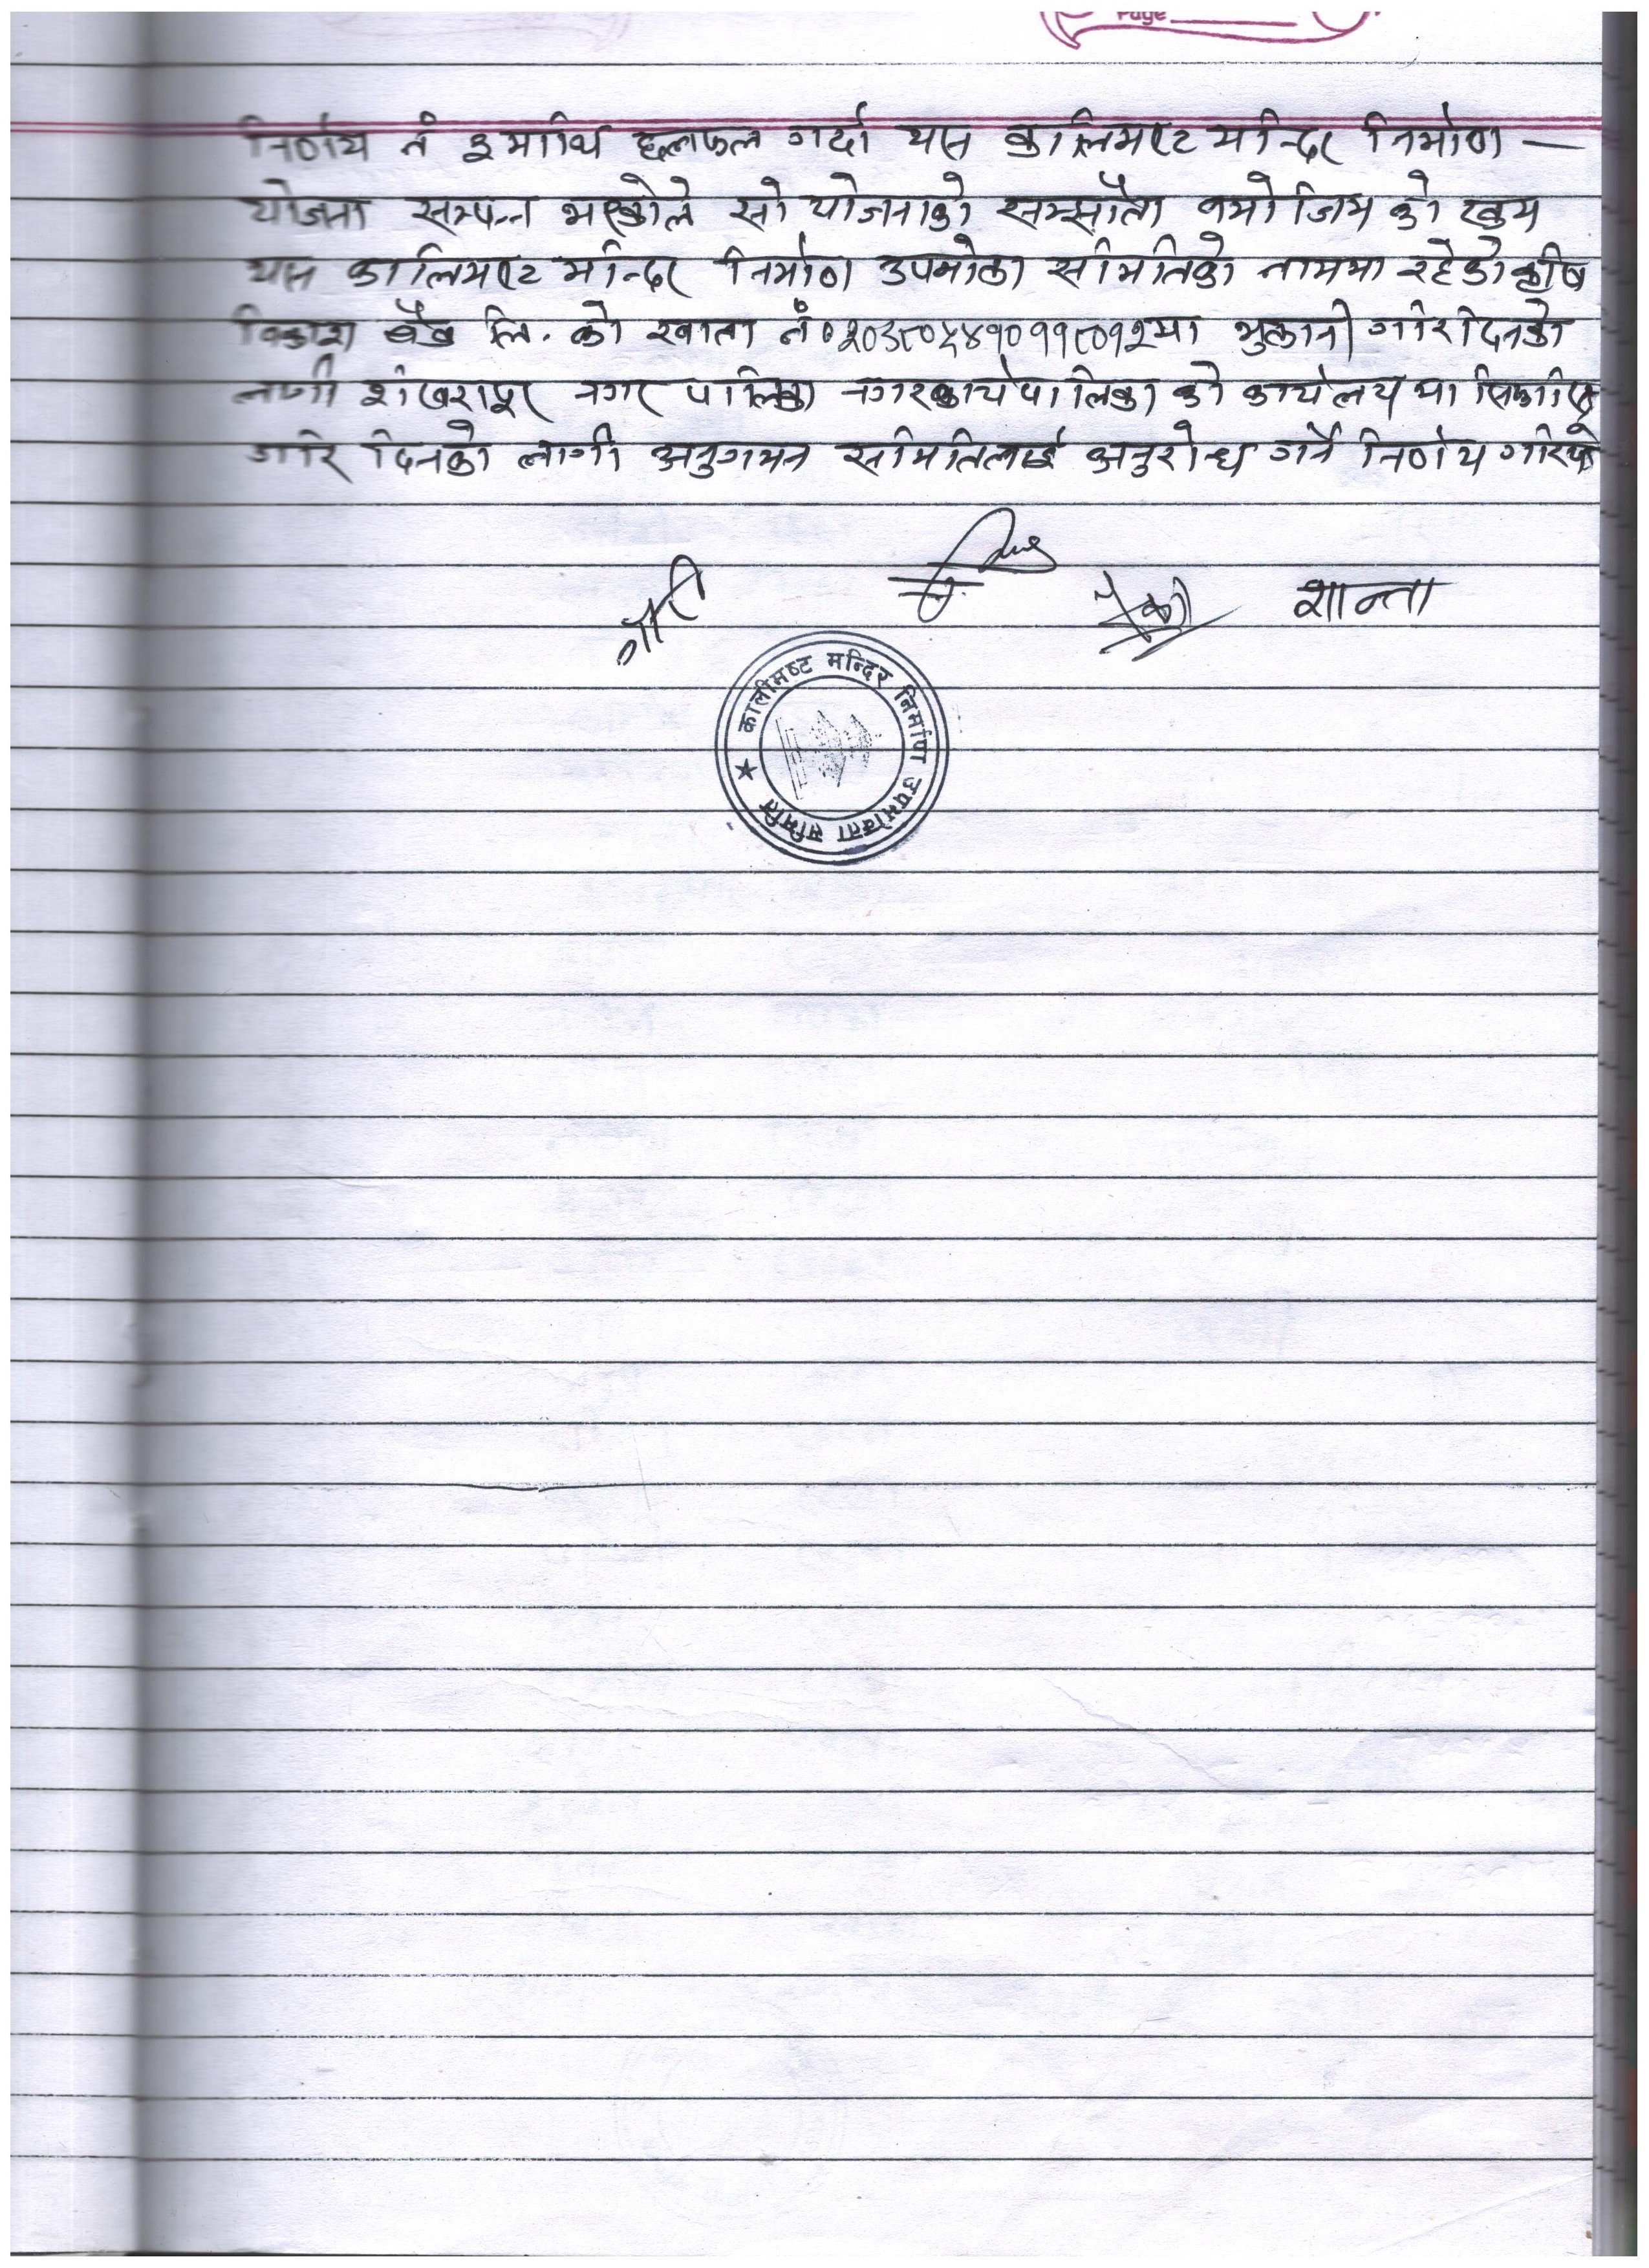 Page
निर्णय नं ३ माथि छलफल गर्दा यस कालिमष्ट मन्दिर निर्माण —
योजना सम्पन्न भएकोले सो योजनाको सम्झौता बमोजिम को रकम
यस कालिमष्ट मन्दिर निर्माण उपभोक्ता समितिको नाममा रहेको कृषि
विकाश बैंक लि. को खाता नं मा भुक्तानी गरिदिनको
लागी शंखरापुर नगर पालिका नगरकार्यपालिका को कार्यलय मा सिफारिस
गरि दिनको लागी अनुगमन समितिलाई अनुरोध गर्ने निर्णय गरियो
गौरी
शान्ता
कालीमष्ट मन्दिर निर्माण उपभोक्ता समिति